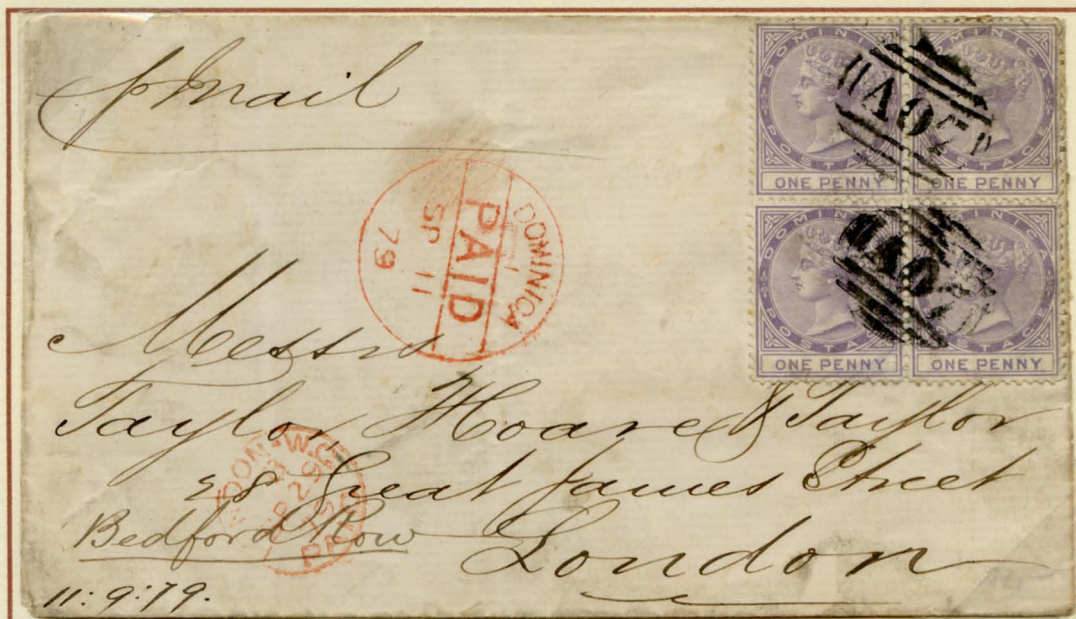 p Mail
DOMINICA POSTAGE
ONE PENNY
DOMINICA POSTAGE
ONE PENNY
A07
DOMINICA POSTAGE
ONE PENNY
DOMINICA POSTAGE
ONE PENNY
A07
DOMINICA
PAID
SP 11
79
Messrs
Taylor Hoare & Taylor
28 Great James Street
Bedford Row
London
11:9:79.
LONDON·W.C
PAID